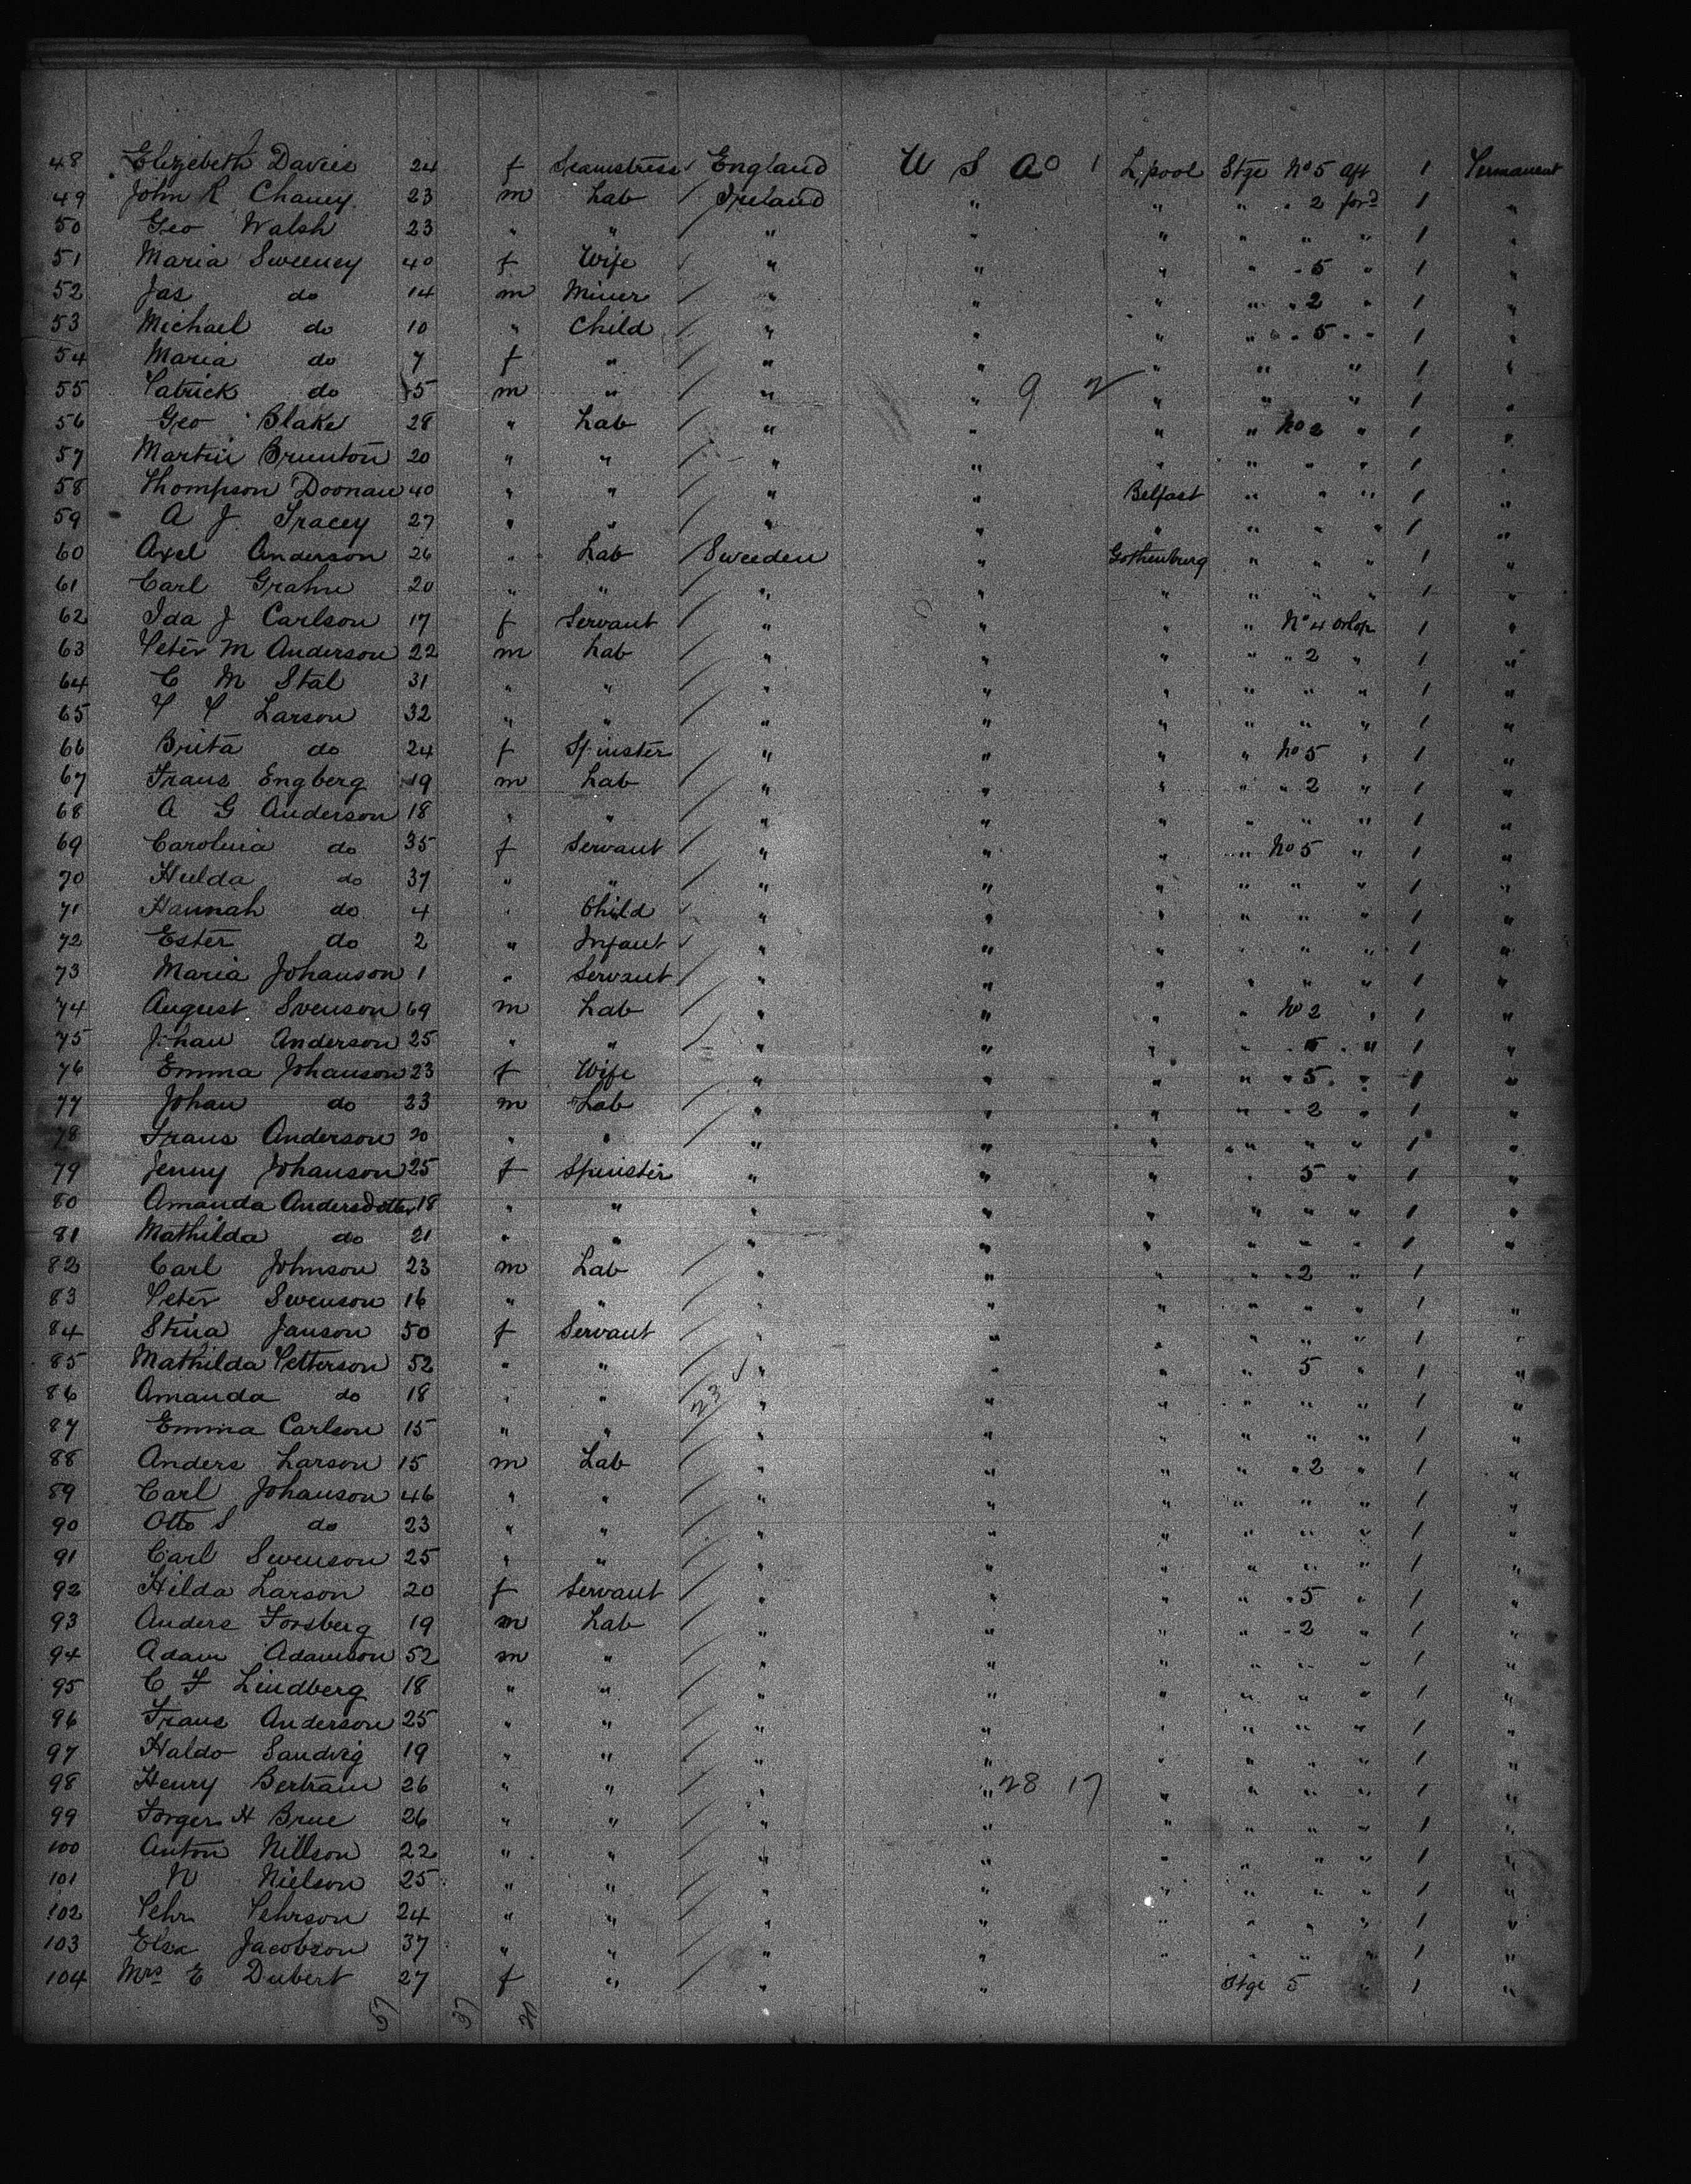 48 Elizebeth Davies 24 f Seamstress England U S A 1 L'pool Stge No 5 aft 1 Permanent
49 John R Chaney 23 m Lab / Ireland " " " " 2 ford 1 "
50 Geo Walsh 23 " " / " " " " " " 1 "
51 Maria Sweeney 40 f Wife / " " " " " 5 " 1 "
52 Jas do 14 m Miner / " " " " " 2 " 1 "
53 Michael do 10 " Child / " " " " " 5 " " 1 "
54 Maria do 7 f " / " " " " " 1 "
55 Patrick do 5 m " / " " 9 2 " " " 1 "
56 Geo Blake 28 " Lab / " " " " No 2 " 1 "
57 Martin Brunton 20 " " / " " " " " " 1 "
58 Thompson Doonan 40 " " / " " Belfast " " " 1 "
59 A J Tracey 27 " " / " " " " " " 1 "
60 Axel Anderson 26 " Lab / Sweeden " Gothenburg " " " 1 "
61 Carl Grahn 20 " " / " " " " " " 1 "
62 Ida J Carlson 17 f Servant / " " " " No 4 orlop 1 "
63 Peter M Anderson 22 m Lab / " " " " " 2 " 1 "
64 C M Stal 31 " " / " " " " " " 1 "
65 P P Larson 32 " " / " " " " " " 1 "
66 Brita do 24 f Spinster / " " " " No 5 " 1 "
67 Frans Engberg 19 m Lab / " " " " " 2 " 1 "
68 A G Anderson 18 " " / " " " " " " 1 "
69 Carolina do 35 f Servant / " " " " No 5 " 1 "
70 Hulda do 37 " " / " " " " " " 1 "
71 Hannah do 4 " Child / " " " " " " 1 "
72 Ester do 2 " Infant / " " " " " " 1 "
73 Maria Johanson 1 " Servant / " " " " " " 1 "
74 August Svenson 69 m Lab / " " " " No 2 " 1 "
75 Johan Anderson 25 " " / " " " " " " 1 "
76 Emma Johanson 23 f Wife " " " " " 5 " 1 "
77 Johan do 23 m Lab / " " " " " 2 " 1 "
78 Frans Anderson 20 " " / " " " " " " 1 "
79 Jenny Johanson 25 f Spinster " " " " 5 " 1 "
80 Amanda Andersdotter 18 " " " " " " " " 1 "
81 Mathilda do 21 " " " " " " " " 1 "
82 Carl Johnson 23 m Lab / " " " " " 2 " 1
83 Peter Swenson 16 " " / " " " " " " 1 "
84 Stina Janson 50 f Servant / " " " " " " 1 "
85 Mathilda Petterson 52 " " / " " " " " 5 " 1 "
86 Amanda do 18 " " / 23 " " " " " " 1 "
87 Emma Carlson 15 " " / " " " " " " 1 "
88 Anders Larson 15 m Lab / " " " " " 2 " 1 "
89 Carl Johanson 46 " " / " " " " " " 1 "
90 Otto S do 23 " " / " " " " " " 1 "
91 Carl Swenson 25 " " / " " " " " " 1 "
92 Hilda Larson 20 f Servant / " " " " " 5 " 1 "
93 Anders Forsberg 19 m Lab / " " " " " 2 " 1 "
94 Adam Adamson 52 m " / " " " " " " 1 "
95 C F Lindberg 18 " " / " " " " " " 1 "
96 Frans Anderson 25 " " / " " " " " " 1 "
97 Haldo Sandvig 19 " " / " " " " " " 1 "
98 Henry Bertram 26 " " / " " 28 17 " " " " 1 "
99 Torger H Brue 26 " " / " " " " " " 1 "
100 Anton Nillson 22 " " / " " " " " " 1 "
101 N Nielson 25 " " / " " " " " " 1 "
102 Pehr Pehrson 24 " " / " " " " " " 1 "
103 Elsa Jacobson 37 " " / " " " " " " 1 "
104 Mrs E Dubert 27 f " / " " Stge 5 " 1 "
57 37 20